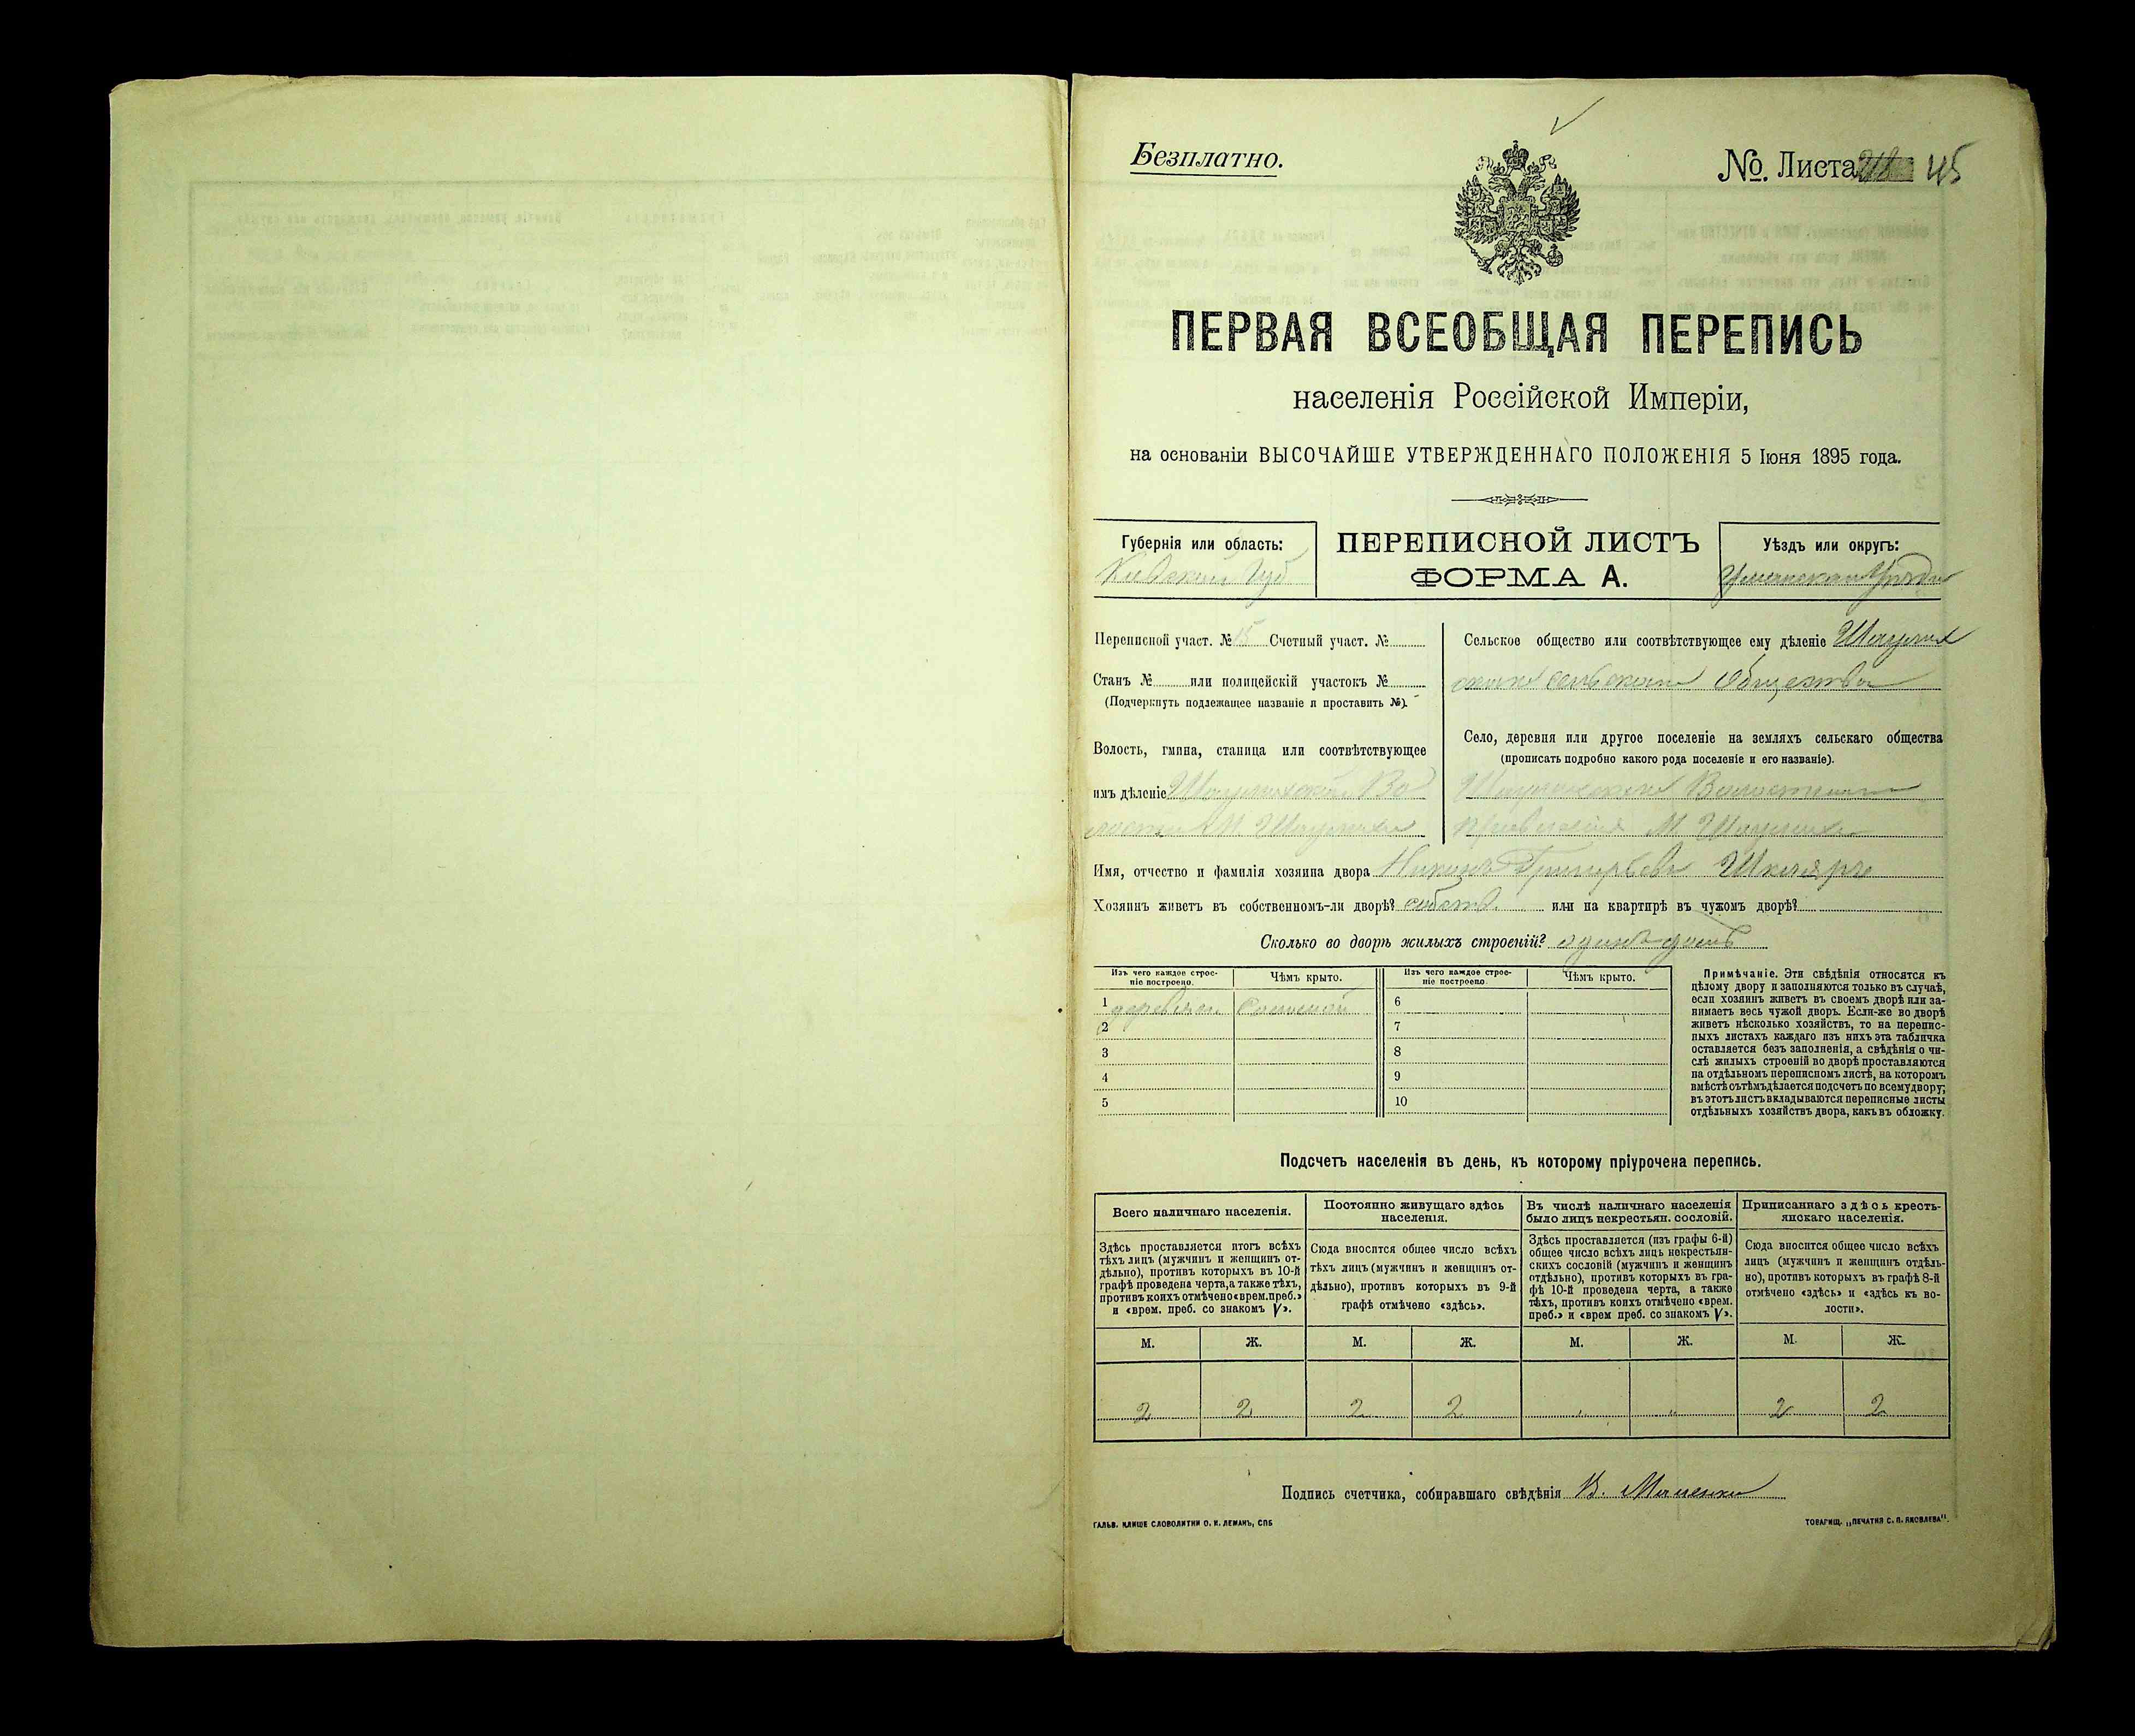 Безплатно.
№. Листа 45
ПЕРВАЯ ВСЕОБЩАЯ ПЕРЕПИСЬ
населенія Россійской Имперіи,
на основаніи ВЫСОЧАЙШЕ УТВЕРЖДЕННАГО ПОЛОЖЕНІЯ 5 Іюня 1895 года.
Губернія или область:
Кіевской Губ
ПЕРЕПИСНОЙ ЛИСТЪ
ФОРМА А.
Уѣздъ или округъ:
Уманскаго Уѣзда
Переписной участ. № 15 Счетный участ. №
Станъ № или полицейскій участокъ №
(Подчеркнуть подлежащее названіе и проставить №).
Волость, гмина, станица или соотвѣтствующее
имъ дѣленіе
Сельское общество или соотвѣтствующее ему дѣленіе
сельскаго Общества
Село, деревня или другое поселеніе на земляхъ сельскаго общества
(прописать подробно какого рода поселеніе и его названіе).
Имя, отчество и фамилія хозяина двора
Хозяинъ живетъ въ собственномъ-ли дворѣ? собств. или на квартирѣ въ чужомъ дворѣ?
Сколько во дворѣ жилыхъ строеній? одинъ домъ
Изъ чего каждое строе-
ніе построено.
Чѣмъ крыто.
Изъ чего каждое строе-
ніе построено.
Чѣмъ крыто.
1 Соломой 6
2 7
3 8
4 9
5 10
Примѣчаніе. Эти свѣдѣнія относятся къ
цѣлому двору и заполняются только въ случаѣ,
если хозяинъ живетъ въ своемъ дворѣ или за-
нимаетъ весь чужой дворъ. Если-же во дворѣ
живетъ нѣсколько хозяйствъ, то на перепис-
ныхъ листахъ каждаго изъ нихъ эта табличка
оставляется безъ заполненія, а свѣдѣнія о чи-
слѣ жилыхъ строеній во дворѣ проставляются
на отдѣльномъ переписномъ листѣ, на которомъ
вмѣстѣ съ тѣмъ дѣлается подсчетъ по всему двору;
въ этотъ листъ вкладываются переписные листы
отдѣльныхъ хозяйствъ двора, какъ въ обложку.
Подсчетъ населенія въ день, къ которому пріурочена перепись.
Всего наличнаго населенія.
Здѣсь проставляется итогъ всѣхъ
тѣхъ лицъ (мужчинъ и женщинъ от-
дѣльно), противъ которыхъ въ 10-й
графѣ проведена черта, а также тѣхъ,
противъ коихъ отмѣчено «врем. преб.»
и «врем. преб. со знакомъ V».
Постоянно живущаго здѣсь
населенія.
Сюда вносится общее число всѣхъ
тѣхъ лицъ (мужчинъ и женщинъ от-
дѣльно), противъ которыхъ въ 9-й
графѣ отмѣчено «здѣсь».
Въ числѣ наличнаго населенія
было лицъ некрестьян. сословій.
Здѣсь проставляется (изъ графы 6-й)
общее число всѣхъ лицъ некрестьян-
скихъ сословій (мужчинъ и женщинъ
отдѣльно), противъ которыхъ въ гра-
фѣ 10-й проведена черта, а также
тѣхъ, противъ коихъ отмѣчено «врем.
преб.» и «врем преб. со знакомъ V».
Приписаннаго здѣсь кресть-
янскаго населенія.
Сюда вносится общее число всѣхъ
лицъ (мужчинъ и женщинъ отдѣль-
но), противъ которыхъ въ графѣ 8-й
отмѣчено «здѣсь» и «здѣсь къ во-
лости».
М. Ж. М. Ж. М. Ж. М. Ж.
2 2 2 2 " " 2 2
Подпись счетчика, собиравшаго свѣдѣнія
ГАЛЬВ. КЛИШЕ СЛОВОЛИТНИ О. И. ЛЕМАНЪ, СПБ
ТОВАРИЩ. „ПЕЧАТНЯ С. П. ЯКОВЛЕВА".